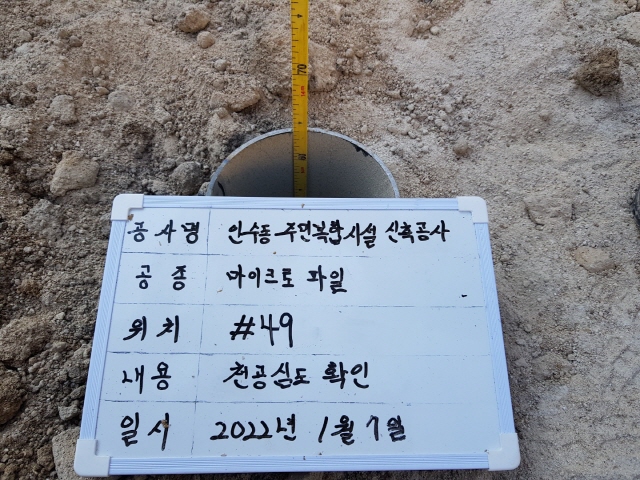 70
공사명 인수동 주민복합시설 신축공사
공종 마이크로 파일
위치 #49
내용 천공심도 확인
일시 2022년 1월 7일